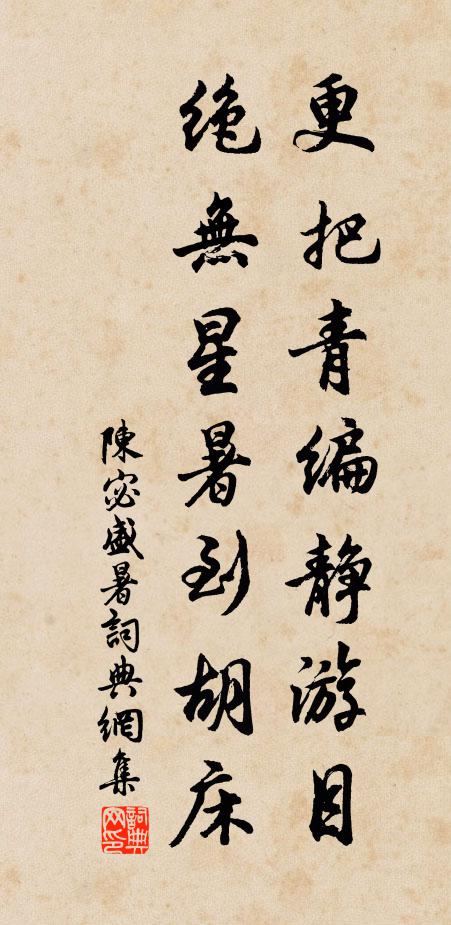 更把青編静游目
絶無星暑到胡床
陳宓盛暑詞典網集
詞典网印